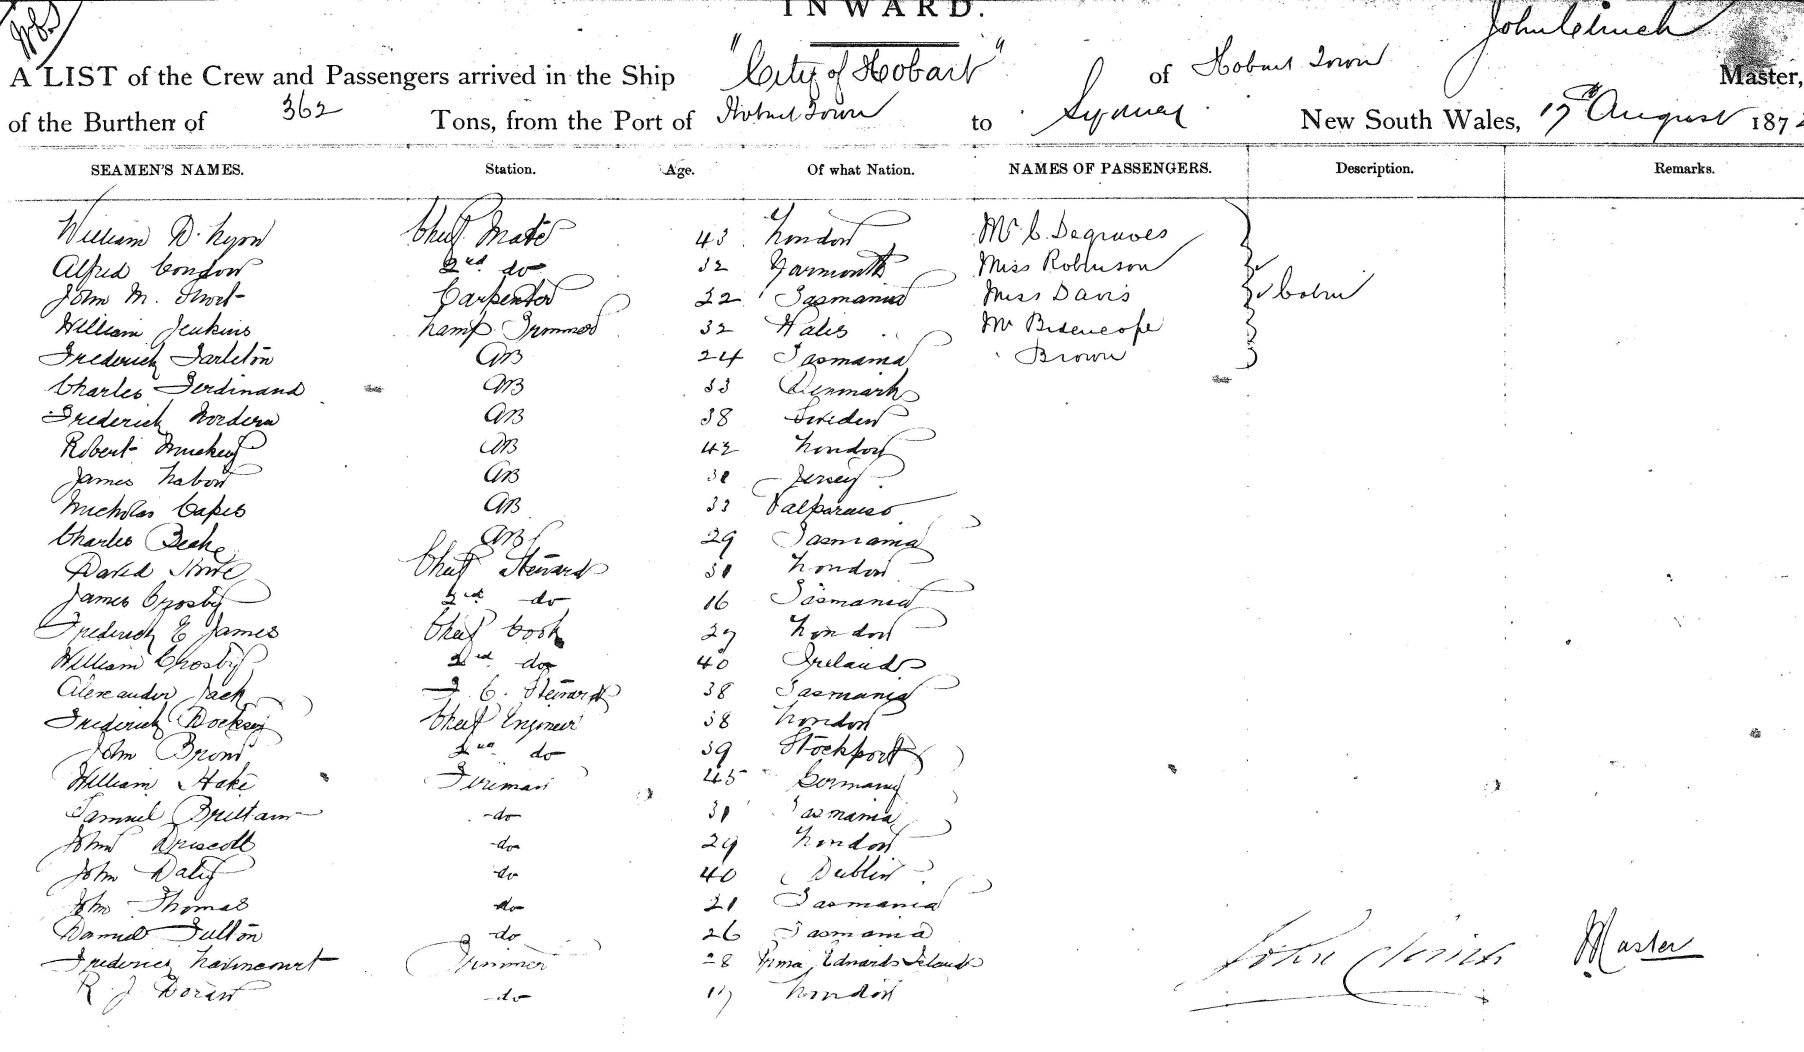 INWARD.
A LIST of the Crew and Passengers arrived in the Ship "City of Hobart" of Hobart Town John Clinch Master,
of the Burthen of 362 Tons, from the Port of Hobart Town to Sydney New South Wales, 17th August 187
SEAMEN'S NAMES. Station. Age. Of what Nation. NAMES OF PASSENGERS. Description. Remarks.
William D. Lyon Chief Mate 43 London Mr C. Degraves
Alfred Condon 2nd do 32 Yarmouth Miss Robinson
John M. Short Carpenter 22 Tasmania Miss Davis Cabin
William Jenkins Lamp Trimmer 32 Wales Mr
Frederick Tarleton AB 24 Tasmania Brown
Charles Ferdinand AB 33 Denmark
Frederick Nordern AB 38 Sweden
Robert AB 42 London
James AB Jersey
Nicholas Capes AB 33 Valparaiso
Charles Beake AB 29 Tasmania
David Chief Steward 31 London
James Crosby 2nd do 16 Tasmania
Frederick E James Chief Cook 27 London
William Crosby 2nd do 40 Ireland
Alexander Jack F. C. Steward 38 Tasmania
Frederick Docksey Chief Engineer 38 London
John 2nd do 39 Stockport
William Hake Fireman 45 Germany
Samuel Brittain do 31 Tasmania
John Driscoll do 29 London
John Daly do 40 Dublin
John Thomas do 21 Tasmania
Daniel Fulton do 26 Tasmania
Frederick Lavincourt Trimmer 28 Edwards Island
R. J. Doran do 17 London
John Clinch Master